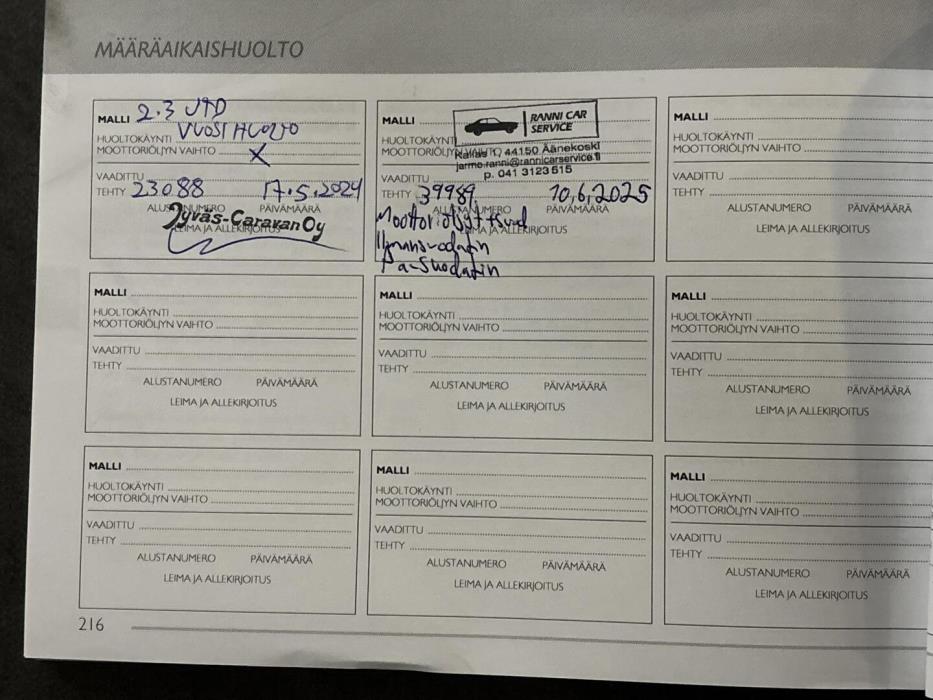 MÄÄRÄAIKAISHUOLTO
MALLI 2.3 JTD
HUOLTOKÄYNTI VUOSIHUOLTO
MOOTTORIÖLJYN VAIHTO X
VAADITTU
TEHTY 23088 17.5.2024
ALUSTANUMERO PÄIVÄMÄÄRÄ
Jyväs-Caravan Oy
LEIMA JA ALLEKIRJOITUS
MALLI
RANNI CAR
SERVICE
HUOLTOKÄYNTI
MOOTTORIÖLJYN
44150 Äänekoski
jarmo.ranni@rannicarservice.fi
p. 041 3123 515
VAADITTU
TEHTY 39989 10.6.2025
ALUSTANUMERO PÄIVÄMÄÄRÄ
Moottoriöljyt + suod
LEIMA JA ALLEKIRJOITUS
Ilmansuodatin
Pa-Suodatin
MALLI
HUOLTOKÄYNTI
MOOTTORIÖLJYN VAIHTO
VAADITTU
TEHTY
ALUSTANUMERO PÄIVÄMÄÄRÄ
LEIMA JA ALLEKIRJOITUS
MALLI
HUOLTOKÄYNTI
MOOTTORIÖLJYN VAIHTO
VAADITTU
TEHTY
ALUSTANUMERO PÄIVÄMÄÄRÄ
LEIMA JA ALLEKIRJOITUS
MALLI
HUOLTOKÄYNTI
MOOTTORIÖLJYN VAIHTO
VAADITTU
TEHTY
ALUSTANUMERO PÄIVÄMÄÄRÄ
LEIMA JA ALLEKIRJOITUS
MALLI
HUOLTOKÄYNTI
MOOTTORIÖLJYN VAIHTO
VAADITTU
TEHTY
ALUSTANUMERO PÄIVÄMÄÄRÄ
LEIMA JA ALLEKIRJOITUS
MALLI
HUOLTOKÄYNTI
MOOTTORIÖLJYN VAIHTO
VAADITTU
TEHTY
ALUSTANUMERO PÄIVÄMÄÄRÄ
LEIMA JA ALLEKIRJOITUS
MALLI
HUOLTOKÄYNTI
MOOTTORIÖLJYN VAIHTO
VAADITTU
TEHTY
ALUSTANUMERO PÄIVÄMÄÄRÄ
LEIMA JA ALLEKIRJOITUS
MALLI
HUOLTOKÄYNTI
MOOTTORIÖLJYN VAIHTO
VAADITTU
TEHTY
ALUSTANUMERO PÄIVÄMÄÄRÄ
LEIMA JA ALLEKIRJOITUS
216